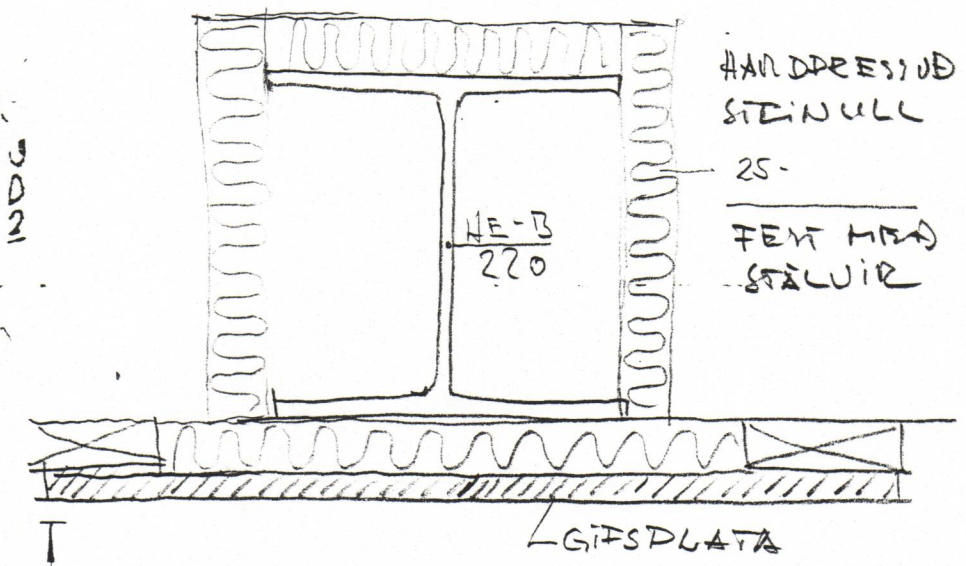 HARÐPRESSUÐ
STEINULL
25-
FEST MEÐ
STÁLVÍR
HE-B
220
GIFSPLATA